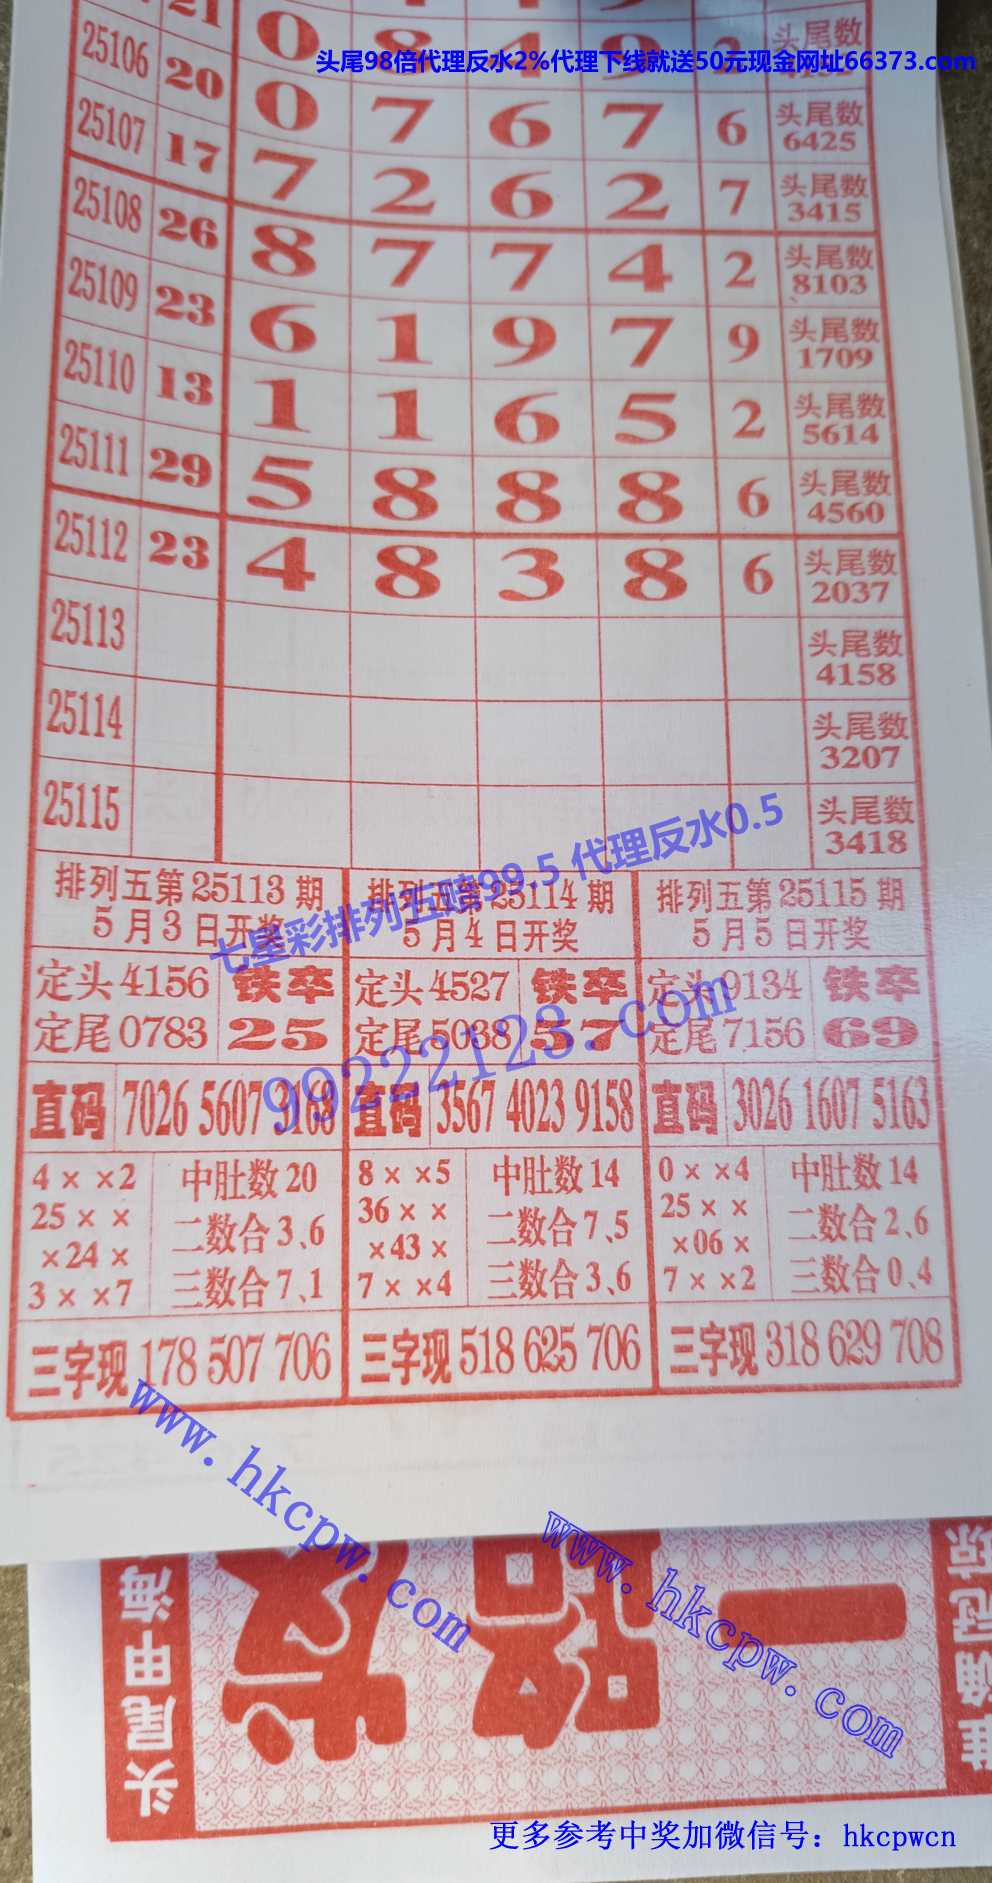 21 0 8 4 9 头尾数
头尾98倍代理反水2%代理下线就送50元现金网址66373.com
25106 20 0 7 6 7 6 头尾数 6425
25107 17 7 2 6 2 7 头尾数 3415
25108 26 8 7 7 4 2 头尾数 8103
25109 23 6 1 9 7 9 头尾数 1709
25110 13 1 1 6 5 2 头尾数 5614
25111 29 5 8 8 8 6 头尾数 4560
25112 23 4 8 3 8 6 头尾数 2037
25113 头尾数 4158
25114 头尾数 3207
25115 头尾数 3418
七星彩排列五赔99.5 代理反水0.5
99222123.com
排列五第25113期
5月3日开奖
定头4156 铁卒
定尾0783 25
直码 7026 5607 3168
4××2 中肚数20
25×× 二数合3、6
×24×
3××7 三数合7、1
三字现 178 507 706
排列五第25114期
5月4日开奖
定头4527 铁卒
定尾5038 57
直码 3567 4023 9158
8××5 中肚数14
36×× 二数合7、5
×43×
7××4 三数合3、6
三字现 518 625 706
排列五第25115期
5月5日开奖
定头9134 铁卒
定尾7156 69
直码 3026 1607 5163
0××4 中肚数14
25×× 二数合2、6
×06×
7××2 三数合0、4
三字现 318 629 708
www.hkcpw.com
www.hkcpw.com
头尾甲海
一路发
更多参考中奖加微信号：hkcpwcn